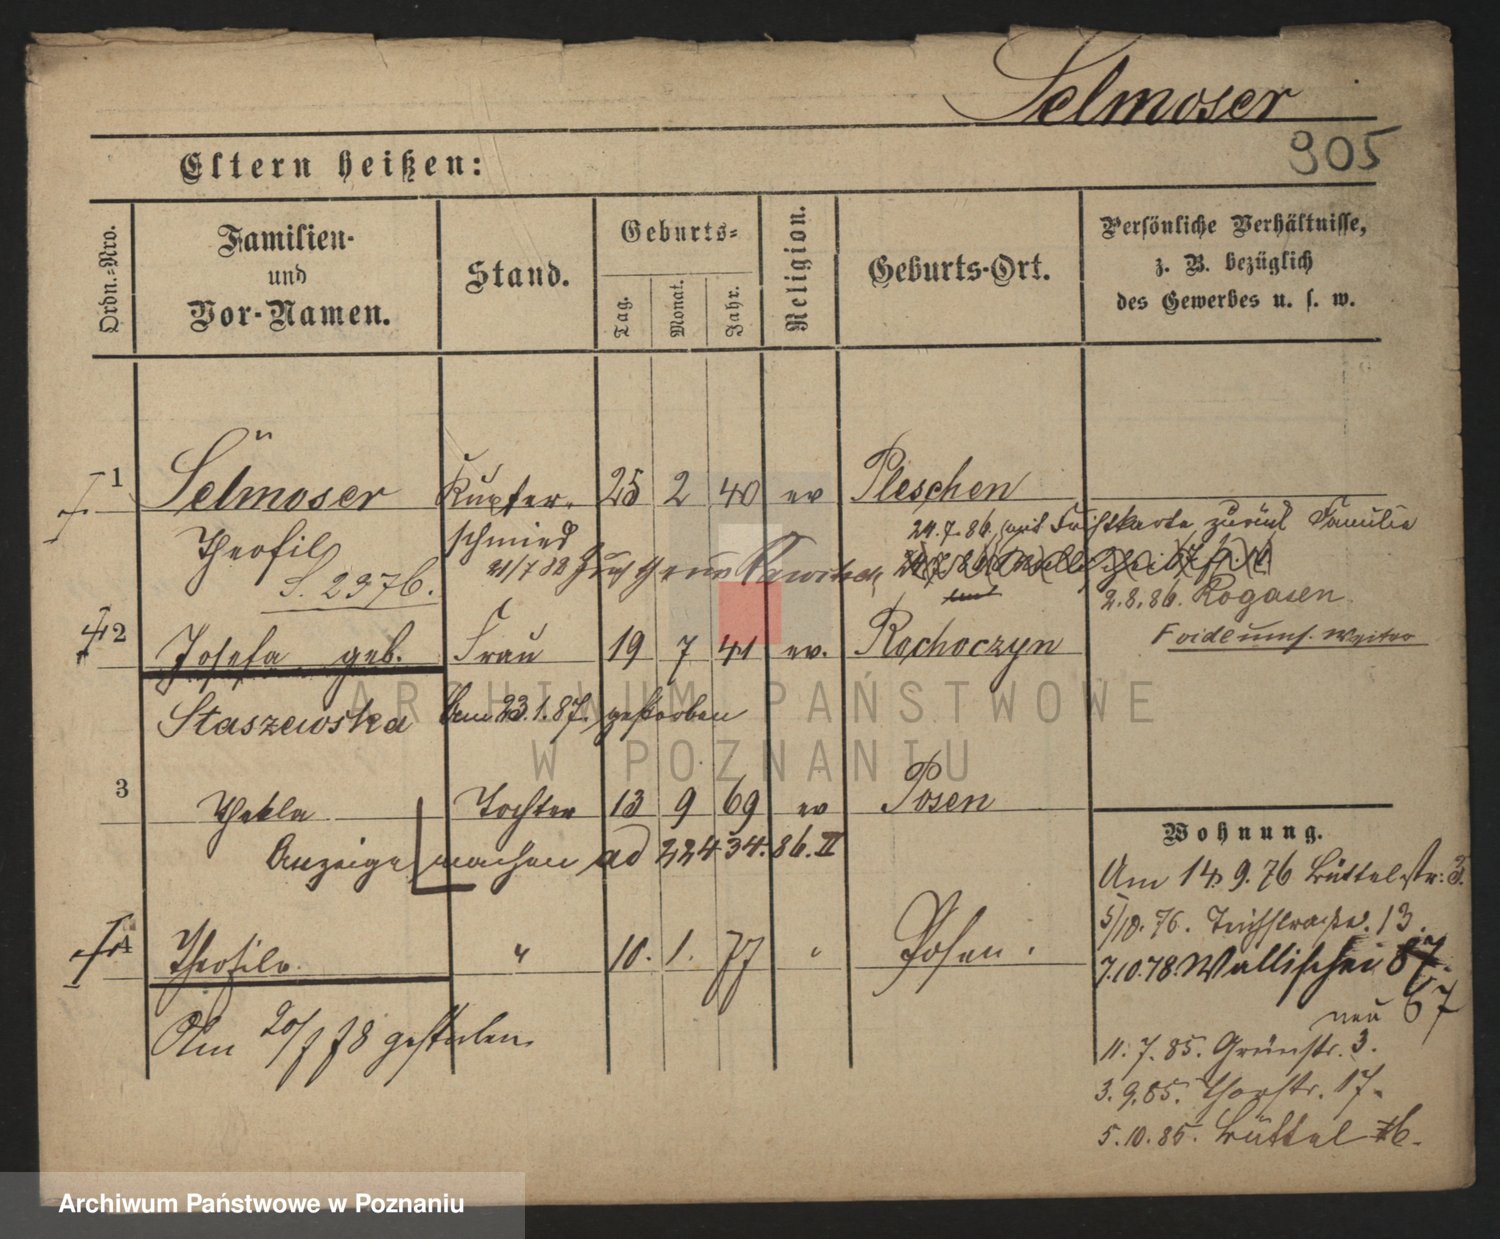 Selmoser
905
Eltern heißen:
Ordn.-Nro.
Familien-
und
Vor-Namen.
Stand.
Geburts-
Tag.
Monat.
Jahr.
Religion.
Geburts-Ort.
Persönliche Verhältnisse,
z. B. bezüglich
des Gewerbes u. s. w.
1 Selmoser Kupfer- 25 2 40 ev Pleschen
Theofil schmied
24.7.86. mit zurück Familie
S. 2376.
21/7 82
2.8.86. Rogasen
2 Josefa geb. Frau 19 7 41 ev. Rochoczyn
Staszewska Am 23.1.87. gestorben
3 Thekla Tochter 13 9 69 ev Posen
Anzeige machen ad 224.34.86.II
4 Theofila " 10. 1. 77 " Posen.
Am 20/7 78 gestorben
Wohnung.
Am 14.9.76 Büttelstr: 3.
5/10.76. 13.
7.10.78. Wallischei 87.
neu 67
11.7.85. Grünstr. 3.
3.9.85. Thorstr. 17.
5.10.85. Büttel
ARCHIWUM PAŃSTWOWE
W POZNANIU
Archiwum Państwowe w Poznaniu